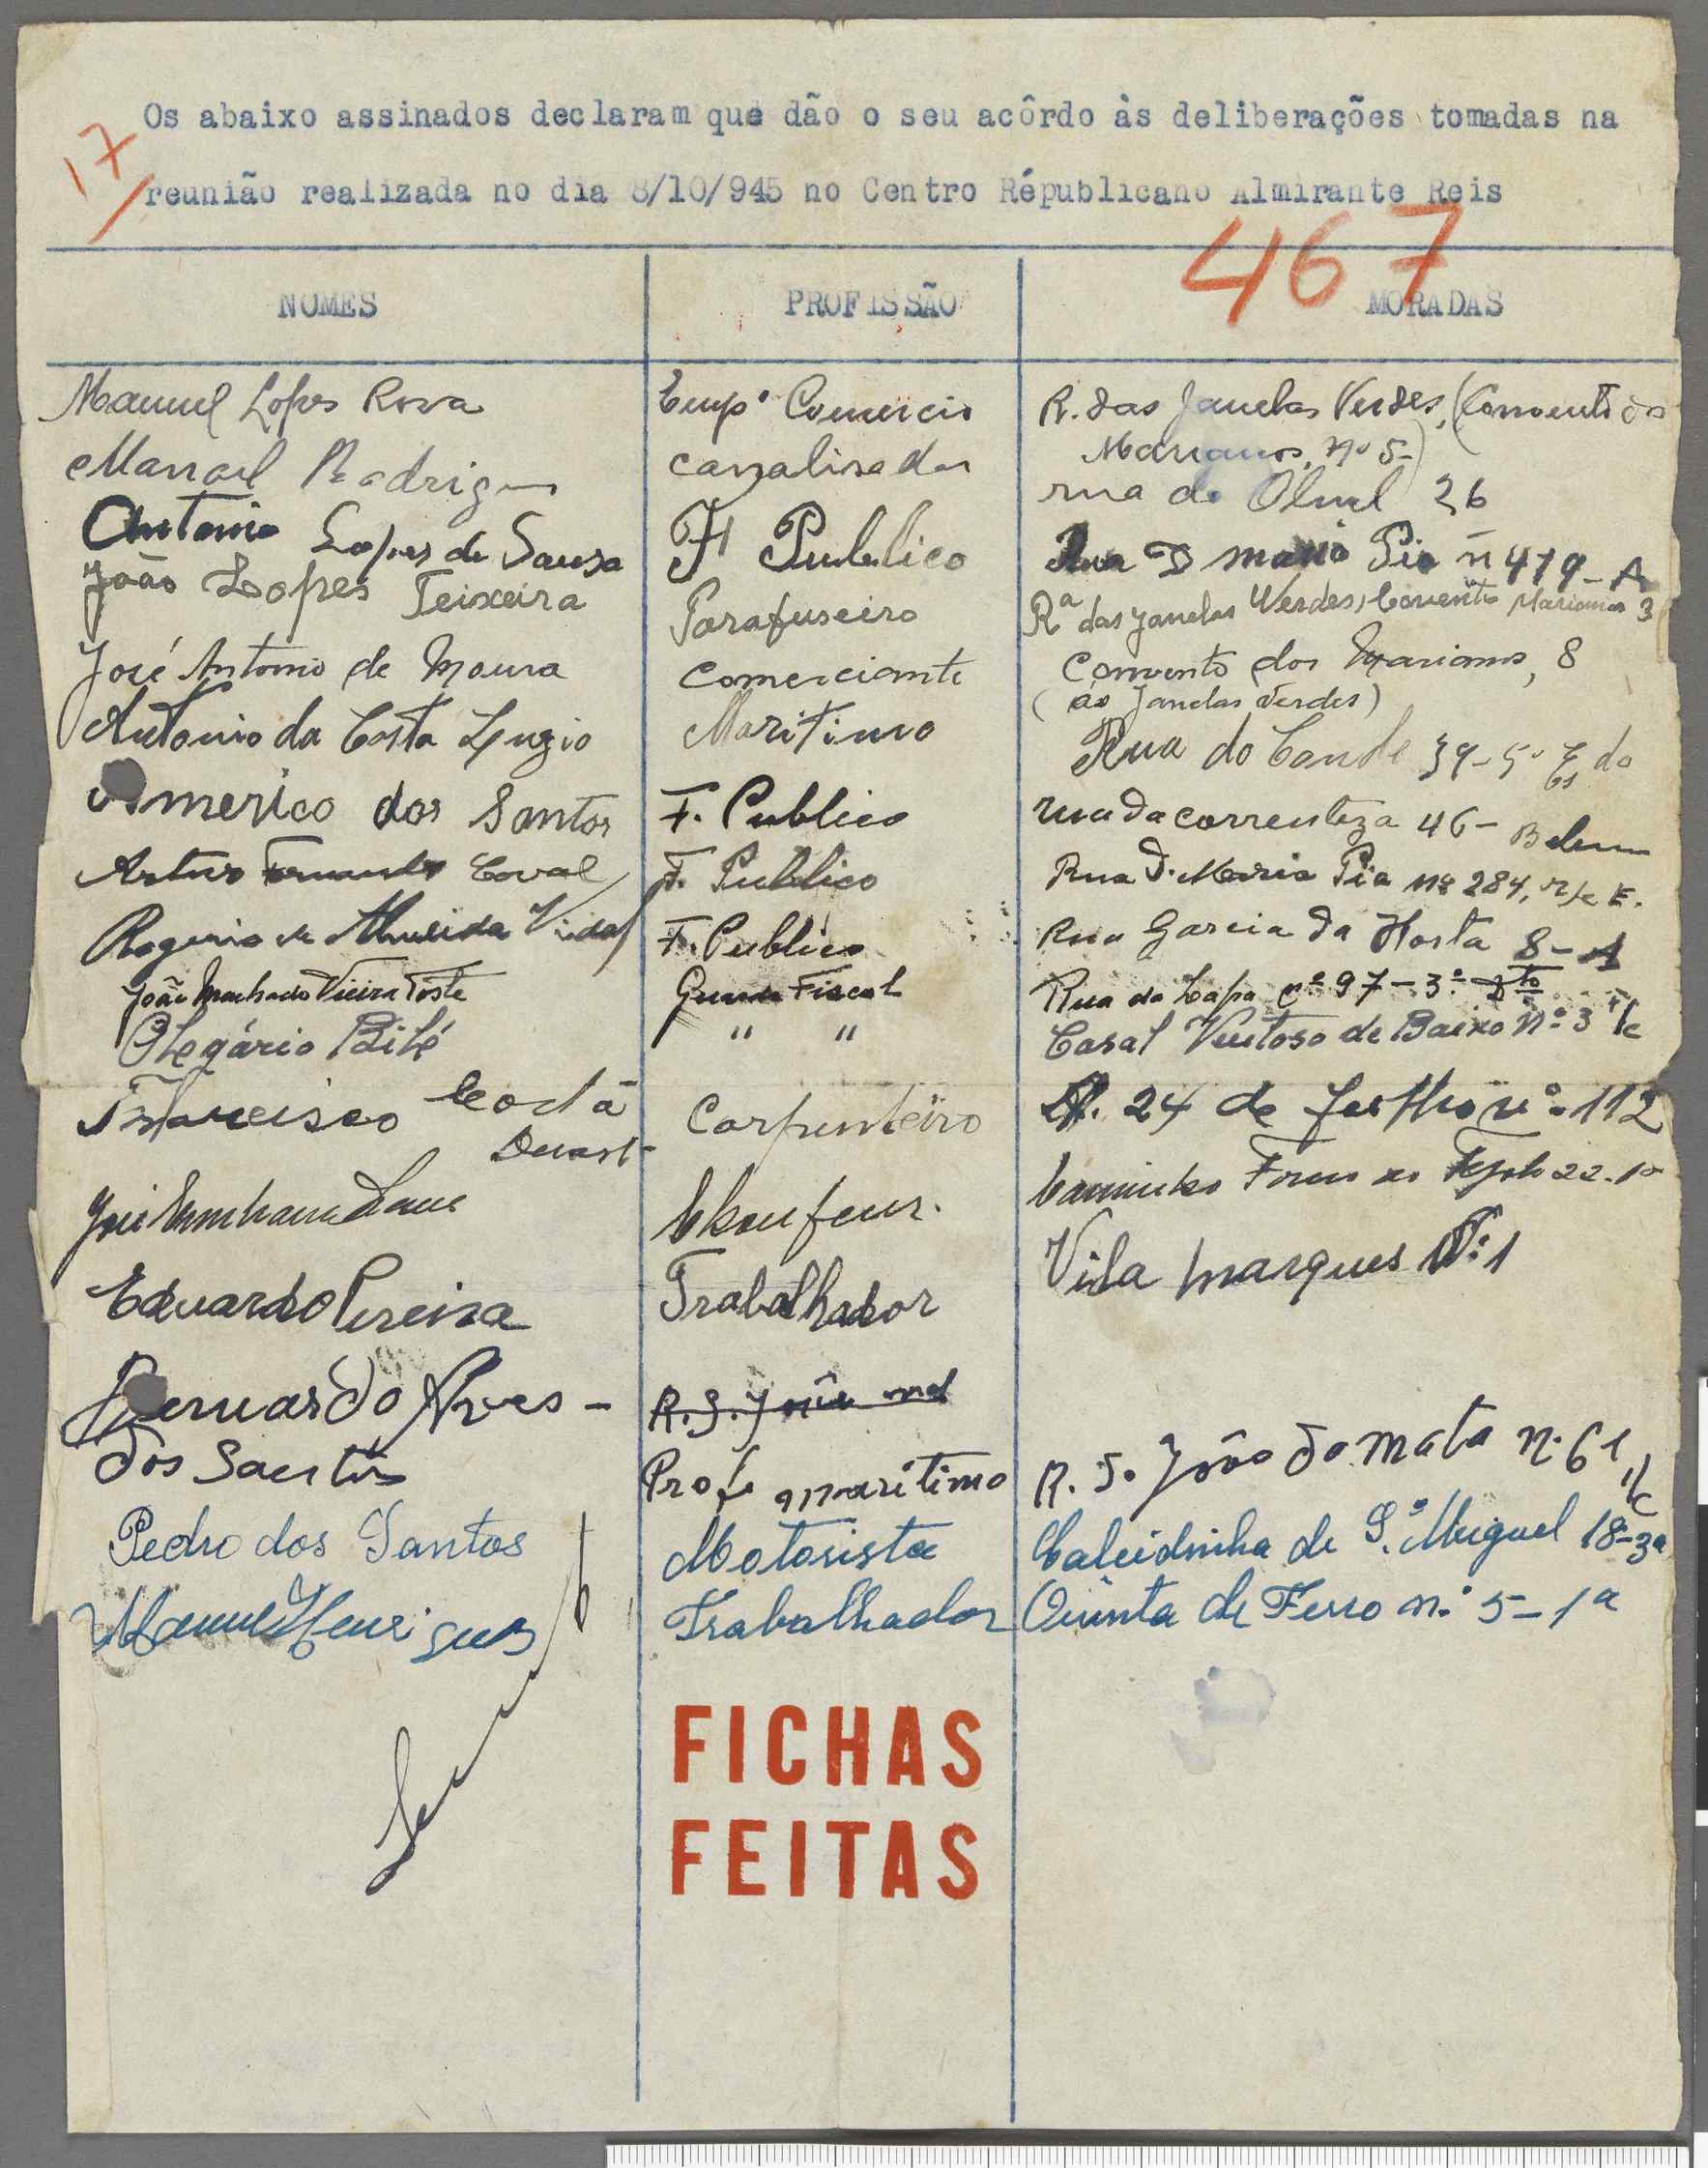 Os abaixo assinados declaram que dão o seu acôrdo às deliberações tomadas na
17
reunião realizada no dia 8/10/945 no Centro Républicano Almirante Reis
467
NOMES PROFISSÃO MORADAS
Manuel Lopes Rosa Emp.º Comercio R. das Janelas Verdes, (Convento dos
Marianos, nº 5-)
Manoel Rodrigues canalisador rua do Olival 26
Antonio Lopes de Sousa F Publico Rua D Maria Pia nº 419-A
João Lopes Teixeira Parafuseiro Rª das Janelas Verdes, Convento Marianos 3
José Antonio de Moura Comerciante Convento dos Marianos, 8
(ás Janelas Verdes)
Antonio da Costa Maritimo Rua do Conde 39-5º
Americo dos Santos F. Publico rua da correnteza 46- Belem
Artur Fernandes F. Publico Rua D. Maria Pia nº 284, r/c E.
Rogerio de Almeida Vidal F. Publico Rua Garcia da Horta 8-A
João Machado Vieira Toste Guarda Fiscal Rua da Lapa nº 97-3º Dto
Olegário Bilé " " Casal Ventoso de Baixo Nº 3 r/c
Francisco Costa Carpinteiro A. 24 de Julho nº 112
Duarte
José Chaufeur. Caminho Forno do Tejolo 22.1º
Eduardo Pereira Trabalhador Vila Marques Nº 1
Bernardo Alves - R. S. João mat
dos Santos Prof. maritimo R. S. João da Mata nº 61 r/c
Pedro dos Santos Motorista Calcidinha de S. Miguel 18-3º
Manuel Henriques Trabalhador Quinta de Ferro n.º 5-1º
FICHAS
FEITAS